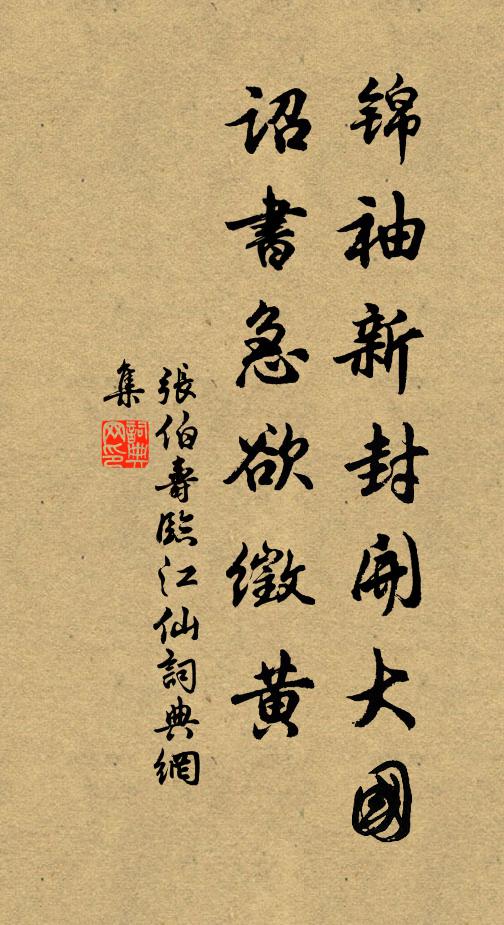 锦袖新封開大國
詔書急欲徵黄
張伯壽臨江仙詞典網
集
詞典網印